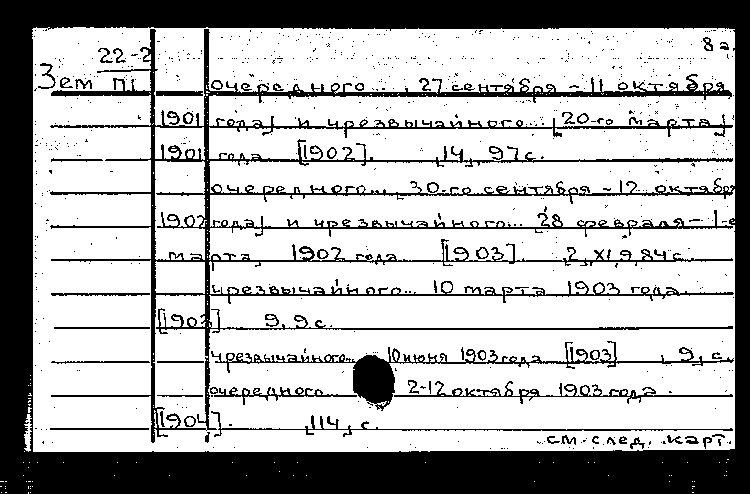 8 а.
22-2
Зем П1
очередного... , 27 сентября - 11 октября
1901 года] и чрезвычайного... [20-го марта]
1901 года [1902]. ,14, 97 с.
очередного... , 30-го сентября - 12 октября
1902 года] и чрезвычайного... 28 февраля - 1-е
марта, 1902 года [1903] 2, XI, 9, 84 с.
чрезвычайного... 10 марта 1903 года.
[1903] 9, 9 с.
чрезвычайного... 10 июня 1903 года [1903] , 9, с.
очередного... 2-12 октября 1903 года.
[1904]. [114] с.
см. след. карт.